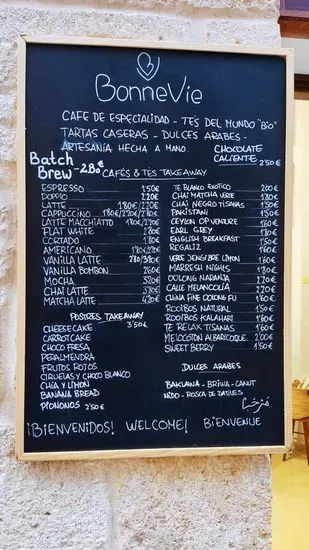 BonneVie
CAFE DE ESPECIALIDAD - TES DEL MUNDO "Bio"
TARTAS CASERAS - DULCES ARABES -
ARTESANÍA HECHA A MANO.
CHOCOLATE
CALIENTE 2'50€
Batch
Brew -2.80€
CAFÉS & TÉS TAKEAWAY
ESPRESSO 1'50€
DOPPIO 2'20€
LATTE 1'80€/2'20€
CAPPUCCINO 1'80€/2'20€/2'80€
LATTE MACCHIATTO 1'80€/2'20€
FLAT WHITE 2'80€
CORTADO 1'80€
AMERICANO 1'80€/2'20€
VANILLA LATTE
VANILLA BOMBON 2'60€
MOCHA
CHAI LATTE 3'80€
MATCHA LATTE 4'20€
TE BLANCO EXOTICO 2'00€
CHAI MATCHA VERDE
CHAI NEGRO TISANAS
PAKISTANI
CEYLON OP VENTURE
EARL GREY
ENGLISH BREAKFAST
REGALIZ
VERDE JENGIBRE LIMON 1'60€
MARRESH NIGHTS
OOLONG NARANJA 2'20€
CALLE MELANCOLÍA 2'20€
CHINA FINE OOLONG FU 1'60€
ROOIBOS NATURAL 1'50€
ROOIBOS KALAHARI 1'60€
TE RELAX TISANAS 1'60€
MELOCOTÓN ALBARICOQUE 2'00€
SWEET BERRY 1'50€
POSTRES TAKEAWAY
3'50€
CHEESECAKE
CARROTCAKE
CHOCO FRESA
PERALMENDRA
FRUTOS ROJOS
CIRUELAS Y CHOCO BLANCO
CHÍA Y LIMON
BANANA BREAD
PIONONOS 2'50€
DULCES ARABES
BAKLAWA - BRIWA - CANUT
NIDO - ROSCA DE DATILES
مرحبا
¡BIENVENIDOS! WELCOME! BIENVENUE